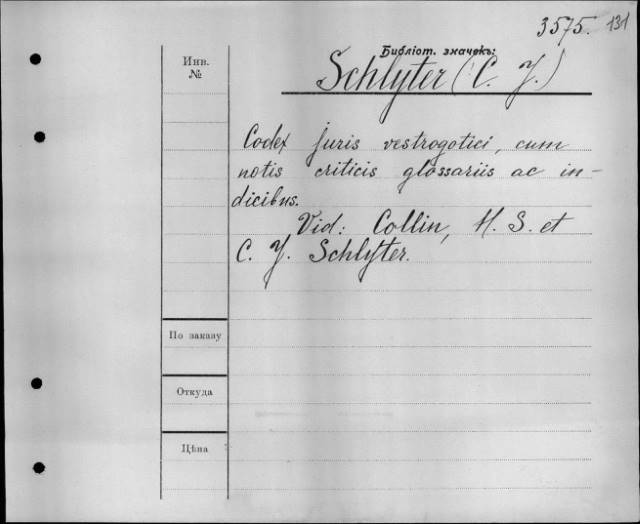 3575. 131
Инв.
№
Библіот. значекъ:
Schlyter (C. J.)
Codex juris vestrogotici, cum
notis criticis glossariis ac in-
dicibus.
Vid: Collin, H. S. et
C. J. Schlyter.
По заказу
Откуда
Цѣна